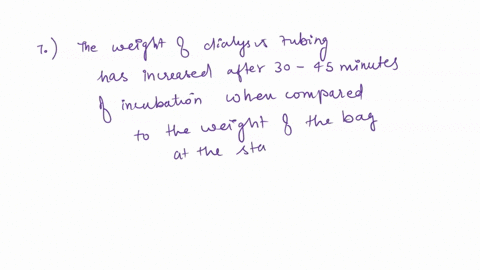 7.) The weight of dialysis tubing
has increased after 30 - 45 minutes
of incubation when compared
to the weight of the bag
at the sta